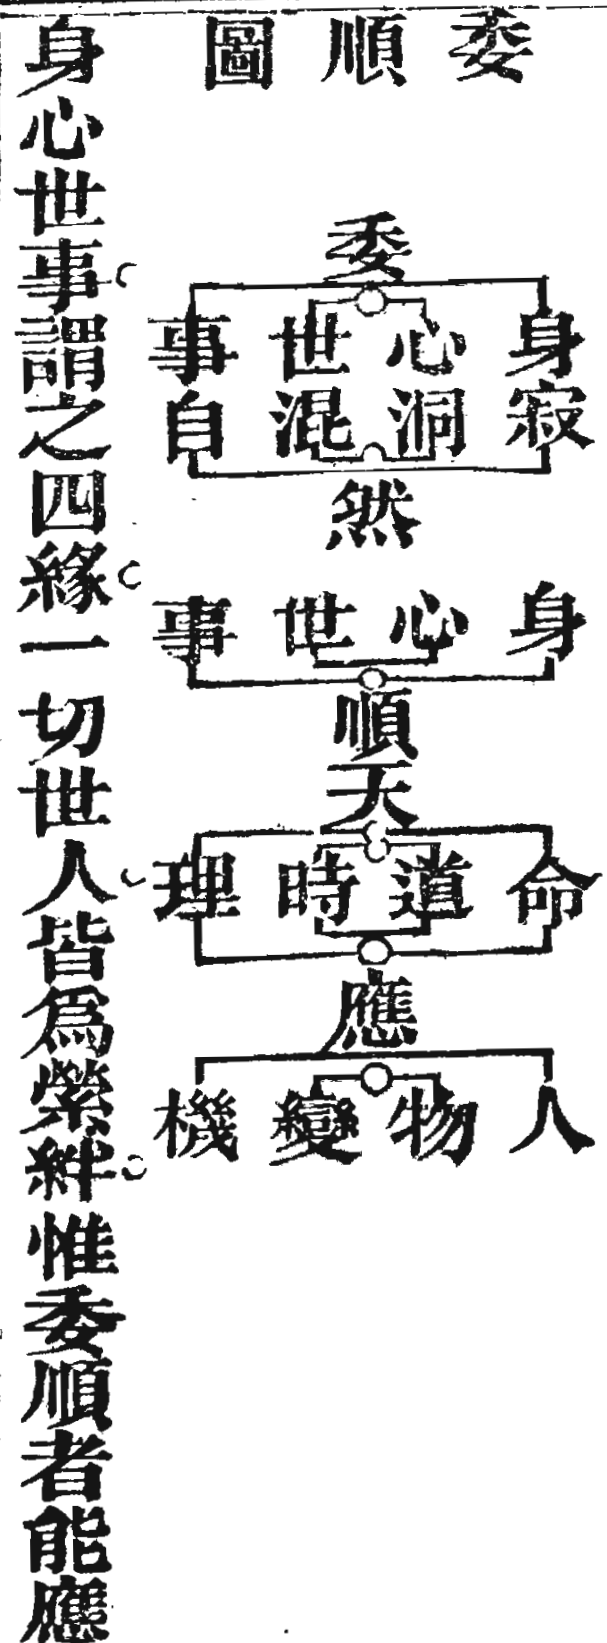 委順圖
委
身心世事
寂洞混自
然
身心世事
順
天
命道時理
應
人物變機
身心世事謂之四緣一切世人皆爲縈絆惟委順者能應